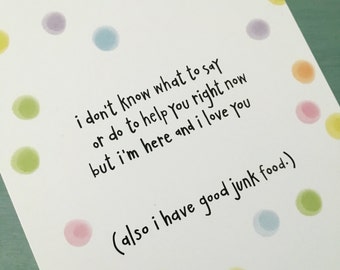 i don't know what to say
or do to help you right now
but i'm here and i love you
(also i have good junk food.)